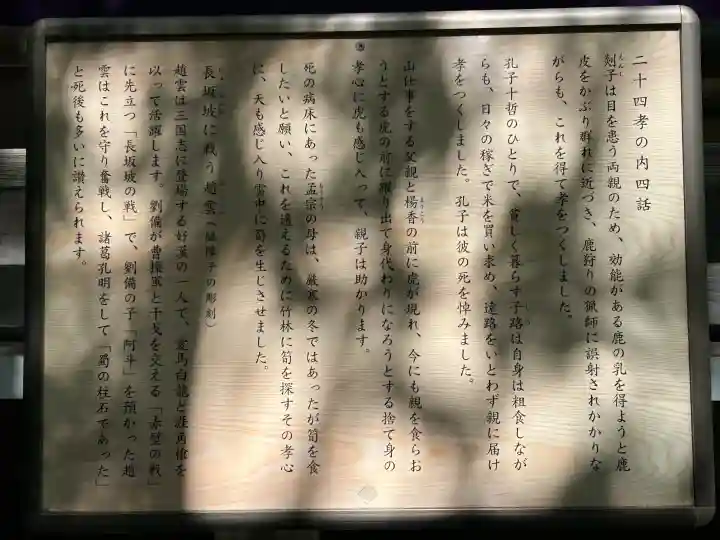 二十四孝の内四話
えんし
剡子は目を患う両親のため、効能がある鹿の乳を得ようと鹿
皮をかぶり群れに近づき、鹿狩りの猟師に誤射されかかりな
がらも、これを得て孝をつくしました。
孔子十哲のひとりで、貧しく暮らす子路は自身は粗食しなが
らも、日々の稼ぎで米を買い求め、遠路をいとわず親に届け
孝をつくしました。孔子は彼の死を悼みました。
ようこう
山仕事をする父親と楊香の前に虎が現れ、今にも親を食らお
うとする虎の前に躍り出て身代わりになろうとする捨て身の
孝心に虎も感じ入って、親子は助かります。
もうそう
死の病床にあった孟宗の母は、厳寒の冬ではあったが筍を食
したいと願い、これを適えるために竹林に筍を探すその孝心
に、天も感じ入り雪中に筍を生じさせました。
長坂坡に戦う趙雲(脇障子の彫刻)
趙雲は三国志に登場する好漢の一人で、愛馬白龍と涯角槍を
以って活躍します。劉備が曹操軍と干戈を交える「赤壁の戦」
に先立つ「長坂坡の戦」で、劉備の子「阿斗」を預かった趙
雲はこれを守り奮戦し、諸葛孔明をして「蜀の柱石であった」
と死後も多いに讃えられます。